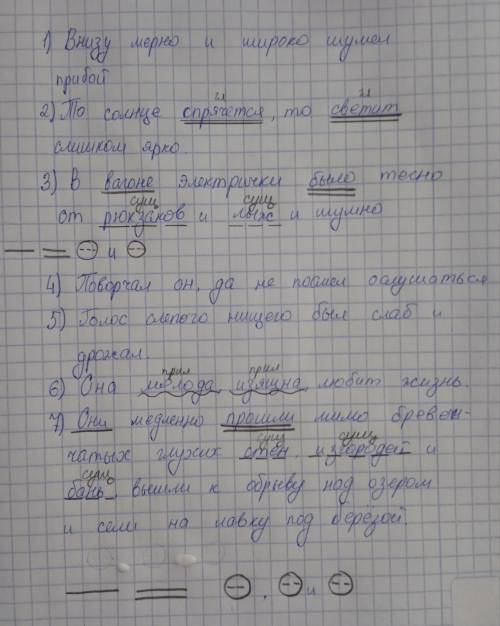 1) Внизу мерно и широко шумел
прибой
гл гл
2) То солнце спрячется, то светит
слишком ярко.
3) В вагоне электрички было тесно
сущ сущ
от рюкзаков и лыж и шумно
и
4) Поворчал он, да не посмел ослушаться
5) Голос слепого нищего был слаб и
дрожал.
прил прил
6) Она молода изящна, любит жизнь.
7) Они медленно прошли мимо бревен-
сущ сущ
чатых глухих стен, изгородей и
сущ
бань, вышли к обрыву над озером
и сели на лавку под берёзой.
, и